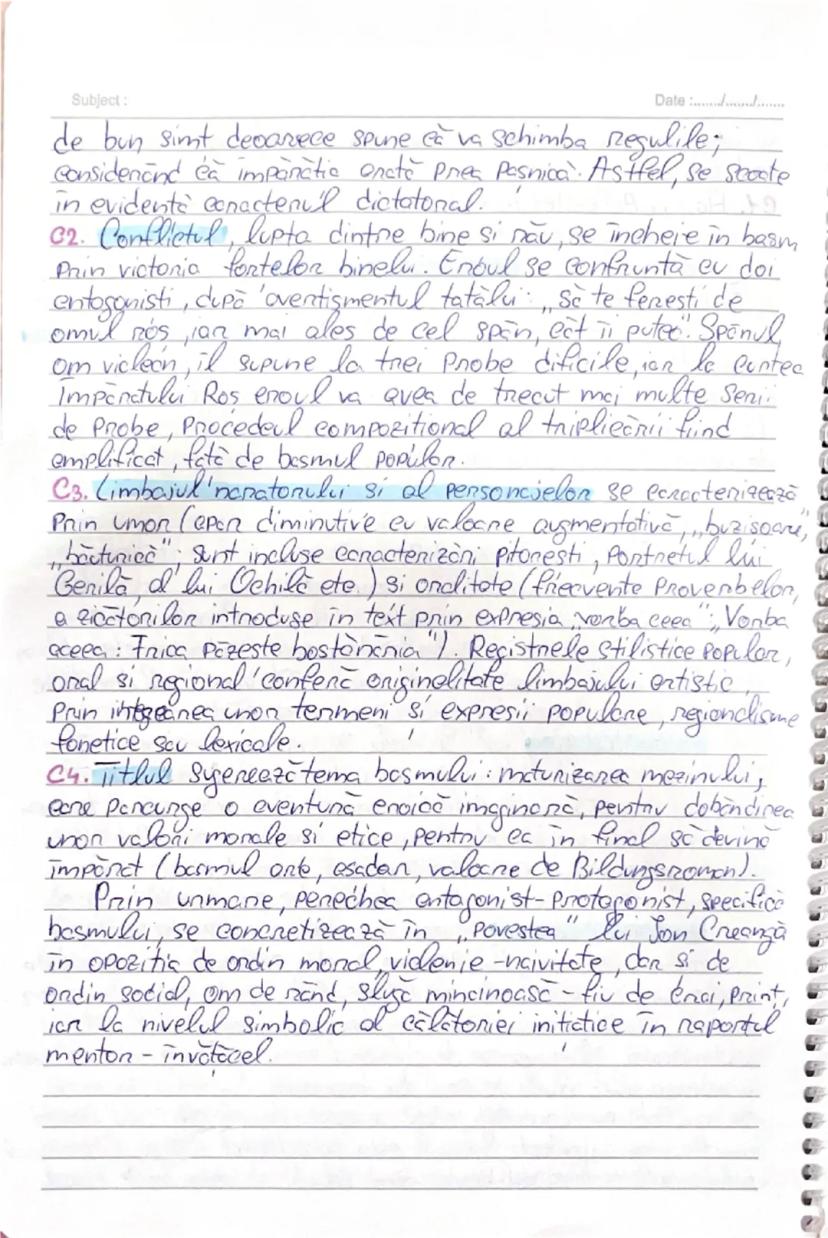 Subject :
Date :....../......./.......
de bun simt deoarece spune că va schimba regulile;
considerând că împărăția arată prea pașnică. Astfel, se scoate
în evidență caracterul dictatorial.
C2. Conflictul, lupta dintre bine si rău, se încheie în basm
prin victoria forțelor binelui. Eroul se confruntă cu doi
antagonisti, după avertismentul tatălui: „Să te ferești de
omul roș, iar mai ales de cel spân, cât îi putea". Spânul,
om viclean, îl supune la trei probe dificile, iar la curtea
Împăratului Roș eroul va avea de trecut mai multe serii
de probe, procedeul compozițional al triplicării fiind
amplificat, față de basmul popular.
C3. Limbajul naratorului și al personajelor se caracterizează
prin umor (apar diminutive cu valoare augmentativă, „buzișoare",
„băuturică"; sunt incluse caracterizări pitorești, portretul lui
Gerilă, al lui Ochilă etc.) și oralitate (frecvente proverbelor,
a zicătorilor introduse în text prin expresia „vorba ceea"; „Vorba
aceea: Frica păzește bostănăria"). Registrele stilistice popular,
oral și regional conferă originalitate limbajului artistic,
prin integrarea unor termeni și expresii populare, regionalisme
fonetice sau lexicale.
C4. Titlul sugerează tema basmului: maturizarea mezinului,
care parcurge o aventură eroică imaginară, pentru dobândirea
unor valori morale si etice, pentru ca în final să devină
împărat (basmul are, așadar, valoare de Bildungsroman).
Prin urmare, perechea antagonist-protagonist, specifică
basmului, se concretizează în „povestea" lui Ion Creangă
în opoziția de ordin moral, viclenie-naivitate, dar si de
ordin social, om de rând, slugă mincinoasă - fiu de crai, prinț,
iar la nivelul simbolic al călătoriei inițiatice în raportul
mentor - învățăcel.